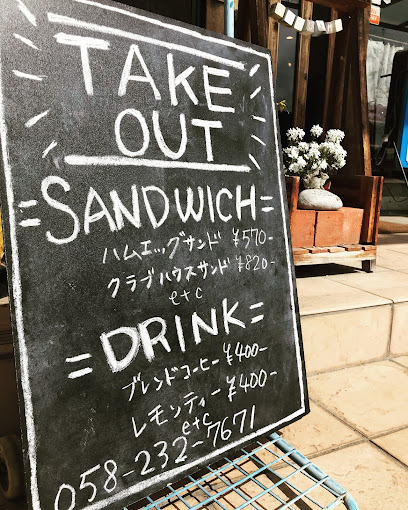 TAKE
OUT
=SANDWICH=
ハムエッグサンド ¥570-
クラブハウスサンド ¥820-
etc
=DRINK=
ブレンドコーヒー ¥400-
レモンティー ¥400-
etc
058-232-7671